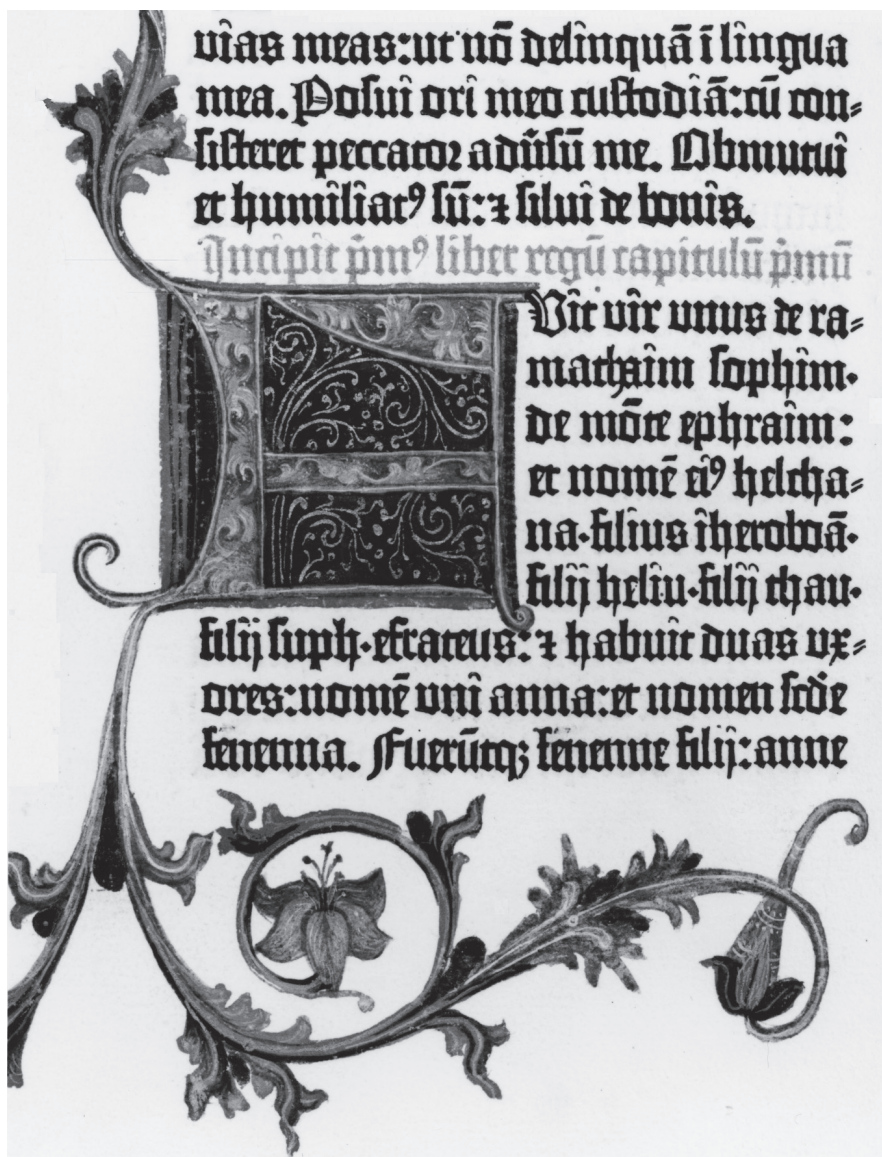 vias meas:ut nō delinquā ī lingua
mea. Posui ori meo custodiā:cū con=
sisteret peccator adūsū me. Obmutui
et humiliatꝰ sū:⁊ silui de bonis.
Incipit p̄mꝰ liber regū capitulū p̄mū
FVit vir unus de ra=
mathaim sophim·
de mōte ephraim:
et nomē eiꝰ helcha=
na·filius iheroboā·
filij heliu·filij thau·
filij suph·efrateus:⁊ habuit duas ux=
ores:nomē uni anna:et nomen scd̄e
fenenna. Fuerūtqꝫ fenenne filij:anne